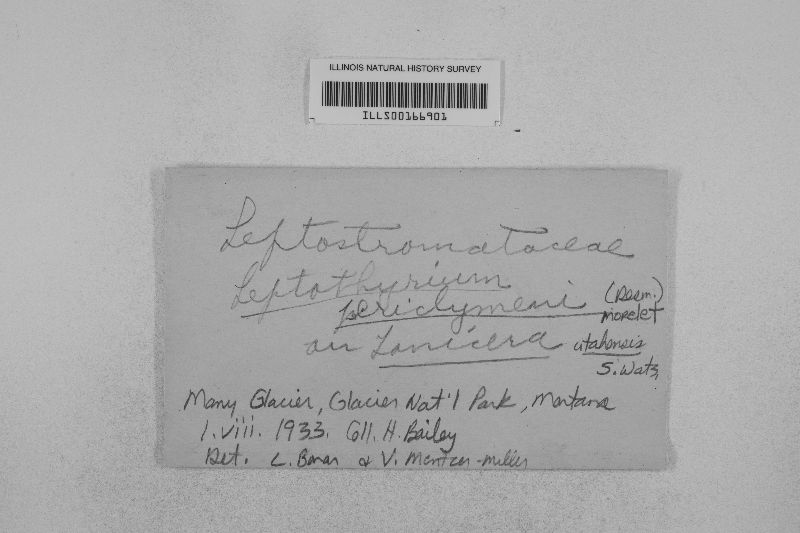 ILLINOIS NATURAL HISTORY SURVEY
ILLS00166901
Leptostromataceae
Leptothyrium
periclymeni (Desm.) morelet
on Lonicera utahensis S. Wats.
Many Glacier, Glacier Nat'l Park, Montana
1. viii. 1933. Coll. H. Bailey
Det. L. Bonar & V. Mentzer-Miller